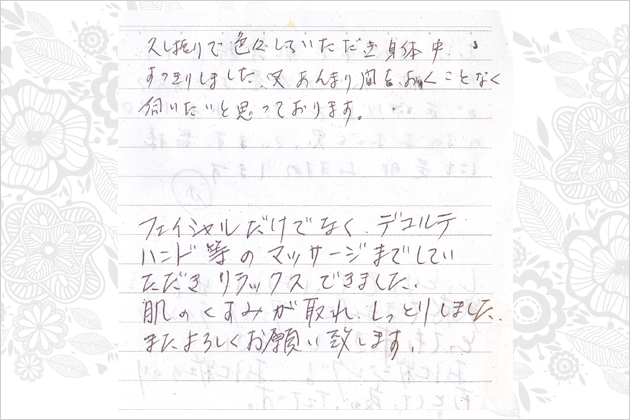 久し振りで色々していただき身体中
すっきりしました。又あんまり間をおくことなく
伺いたいと思っております。
フェイシャルだけでなく、デコルテ
ハンド等のマッサージまでしてい
ただきリラックスできました。
肌のくすみが取れ、しっとりしました。
またよろしくお願い致します。